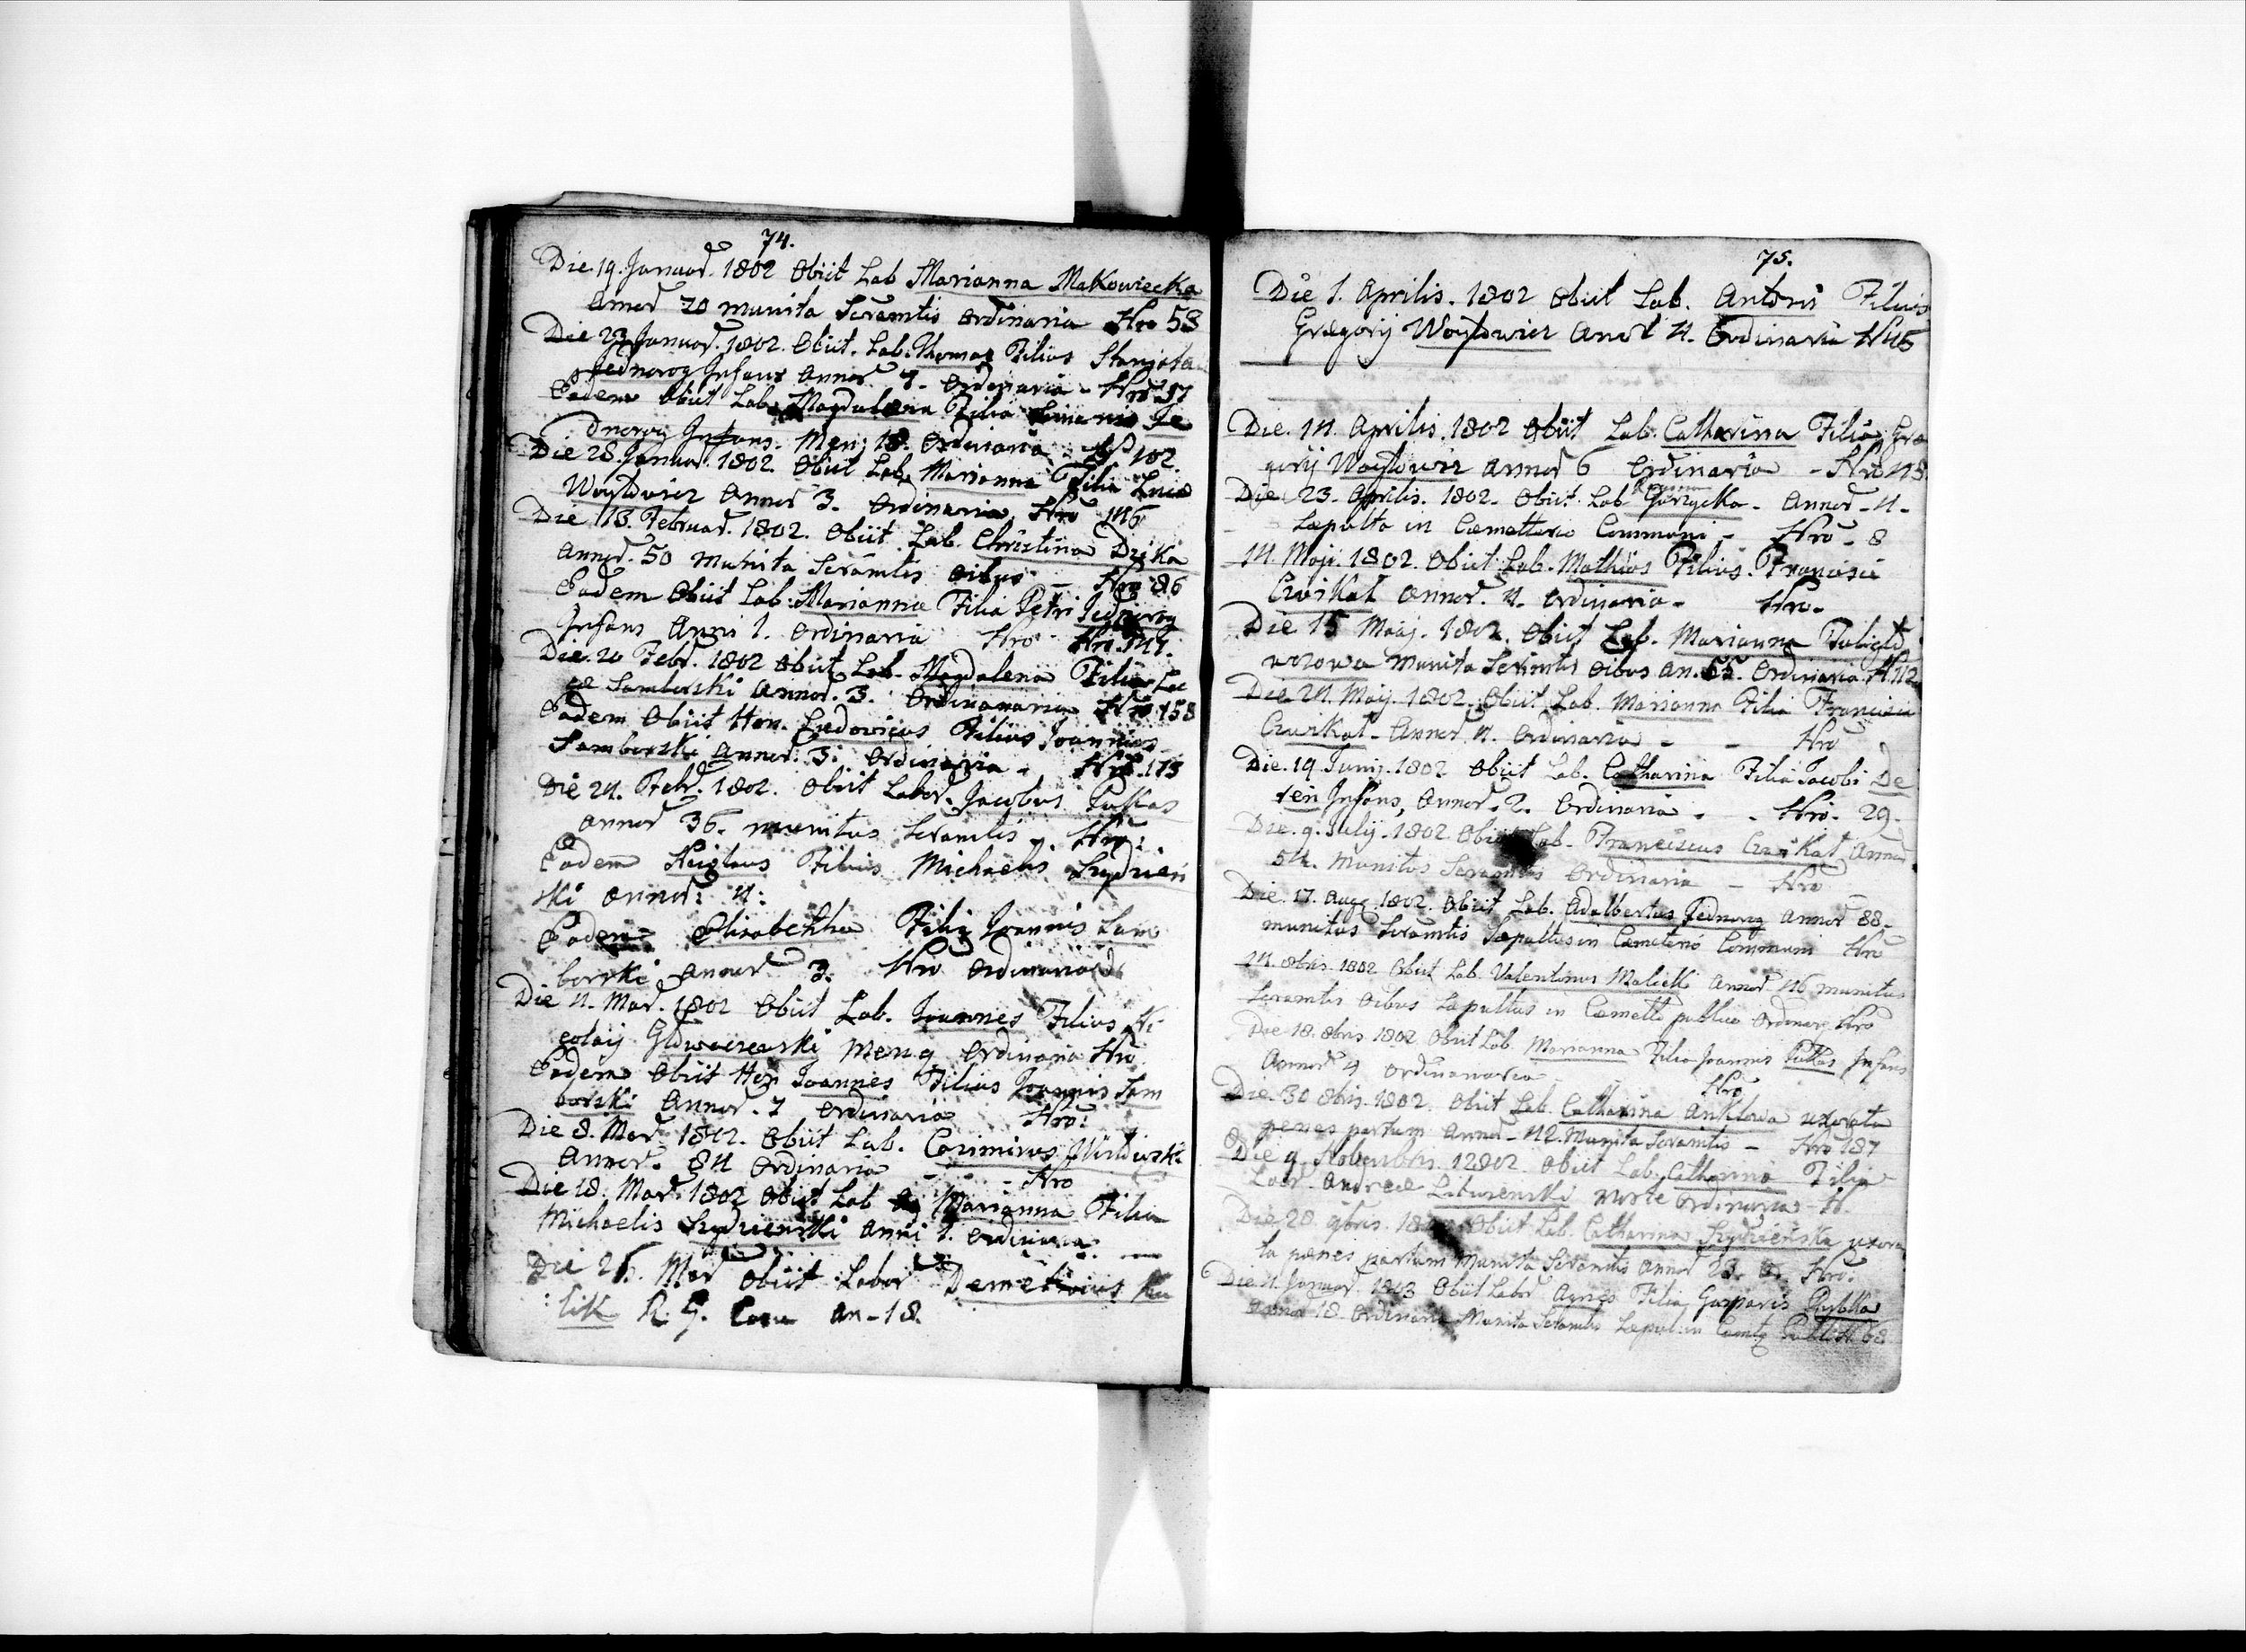 74.
Die 19. Januar. 1802 Obiit Lab Marianna Makowiecka
Annor 70 munita Scramtis Ordinaria Nro 58
Die 23 Januar. 1802. Obiit. Lab. Thomas Filius
Jednorog Infans Annor Ordinaria - Nro 37
Eadem Obiit Lab. Magdalena Filia Je
dnorog Infans. Men. 18. Ordinaria 102
Die 28. Januar. 1802. Obiit Lab. Marianna Filia
Woytowicz Annor 3. Ordinaria Nro 146
Die 13. Februar. 1802. Obiit Lab. Christina Dzika
Annor. 50 Munita Scramtis Oibus - Nro 86
Eadem Obiit Lab. Marianna Filia Petri Jednorog
Infans Anni 1. Ordinaria Nro
Die 20 Febr. 1802 Obiit Lab. Magdalena Filia Lu
cæ Samborski Annor. 3. Ordinanaria Nro 158
Eadem Obiit Hon. Ludovicus Filius Joannis
Samborski Annor: 3: Ordinaria - Nro. 173
Die 24. Febr. 1802. Obiit Labor. Jacobus Pukas
Annor 36. munitus Scramtis. Nro:
Eadem Filius Michaelis Szydzien
ski Annor: 4:
Eadem Elisabetha Filia Joannis Sam
borski Annor 3. Nro Ordinaria
Die 4. Mar. 1802 Obiit Lab. Joannes Filius Ni
colaij Men. 9 Ordinaria Nro
Eadem Obiit Hon Joannes Filius Joannis Sam
borski Annor. 7 Ordinaria Nro:
Die 8. Mar. 1802. Obiit Lab. Casimirus
Annor. 84 Ordinaria - - Nro
Die 18. Mar. 1802 Obiit Lab Marianna Filia
Michaelis Szydzienski Anni 1. Ordinaria: -
Die 26. Mar Obiit Labor Demetrius
lik R. G. an - 18.
75.
Die 1. Aprilis. 1802 Obiit Lab. Antoni Filius
Gregorij Woytowicz Anor 4. Ordinaria N 46
Die. 14. Aprilis. 1802 Obiit Lab. Catharina Filia Gre
gorij Woytowicz Annor 6 Ordinaria - Nro
Die 23. Aprilis. 1802. Obiit. Lab. Gorzycka - Annor - 4 -
Sæpulta in Cæmetterio Communi - Nro - 8
14 Maji. 1802. Obiit Lab. Mathias Filius. Francisci
Cwikat Annor. 4. Ordinaria - Nro -
Die 15 Maij. 1802. Obiit Lab. Marianna
Munita Scrimtis Oibus An. 65. Ordinaria.
Die 24. Maij. 1802. Obiit Lab. Marianna Filia Francisci
Cwikat - Annor 4. Ordinaria - - Nro
Die. 19 Junij. 1802 Obiit Lab. Catharina Filia Jacobi De
ren Infans, Annor. 2. Ordinaria - - Nro. 29.
Die. 9. Julij. 1802 Obiit Lab. Franciscus Cwikat Annor
54. Munitus Scramtis Ordinaria - Nro -
Die. 17. Aug. 1802. Obiit Lab. Adalbertus Jednorog Annor 88.
munitus Scramtis Sæpultus in Cæmeterio Communi Nro
14. 8bris. 1802 Obiit Lab. Valentinus Malicki Annor 46 munitus
Scramtis Oibus Sæpultus in Cæmett publico Ordinar. Nro
Die 18. 8bris 1802 Obiit Lab. Marianna Filia Joannis Pukas Infans
Annor 4 Ordinanaria Nro
Die. 30 8bris. 1802. Obiit Lab. Catharina uxorata
penes partum Annor - 42. Munita Scramtis - Nro 187
Die 9 Novembris. 12802. Obiit Lab. Catharina Filia
Labr. Andreæ morte Ordinaria - N.
Die 28. 9bris. Obiit Lab. Catharina Szydzienska uxora
ta penes partum Munita Scramtis Annor 23. Nro:
Die 4. Januar. 1803 Obiit Labor Agnes Filia Gasparis
Annor 18. Ordinaria Munita Scramtis Sæpul: in Cæmet. 68